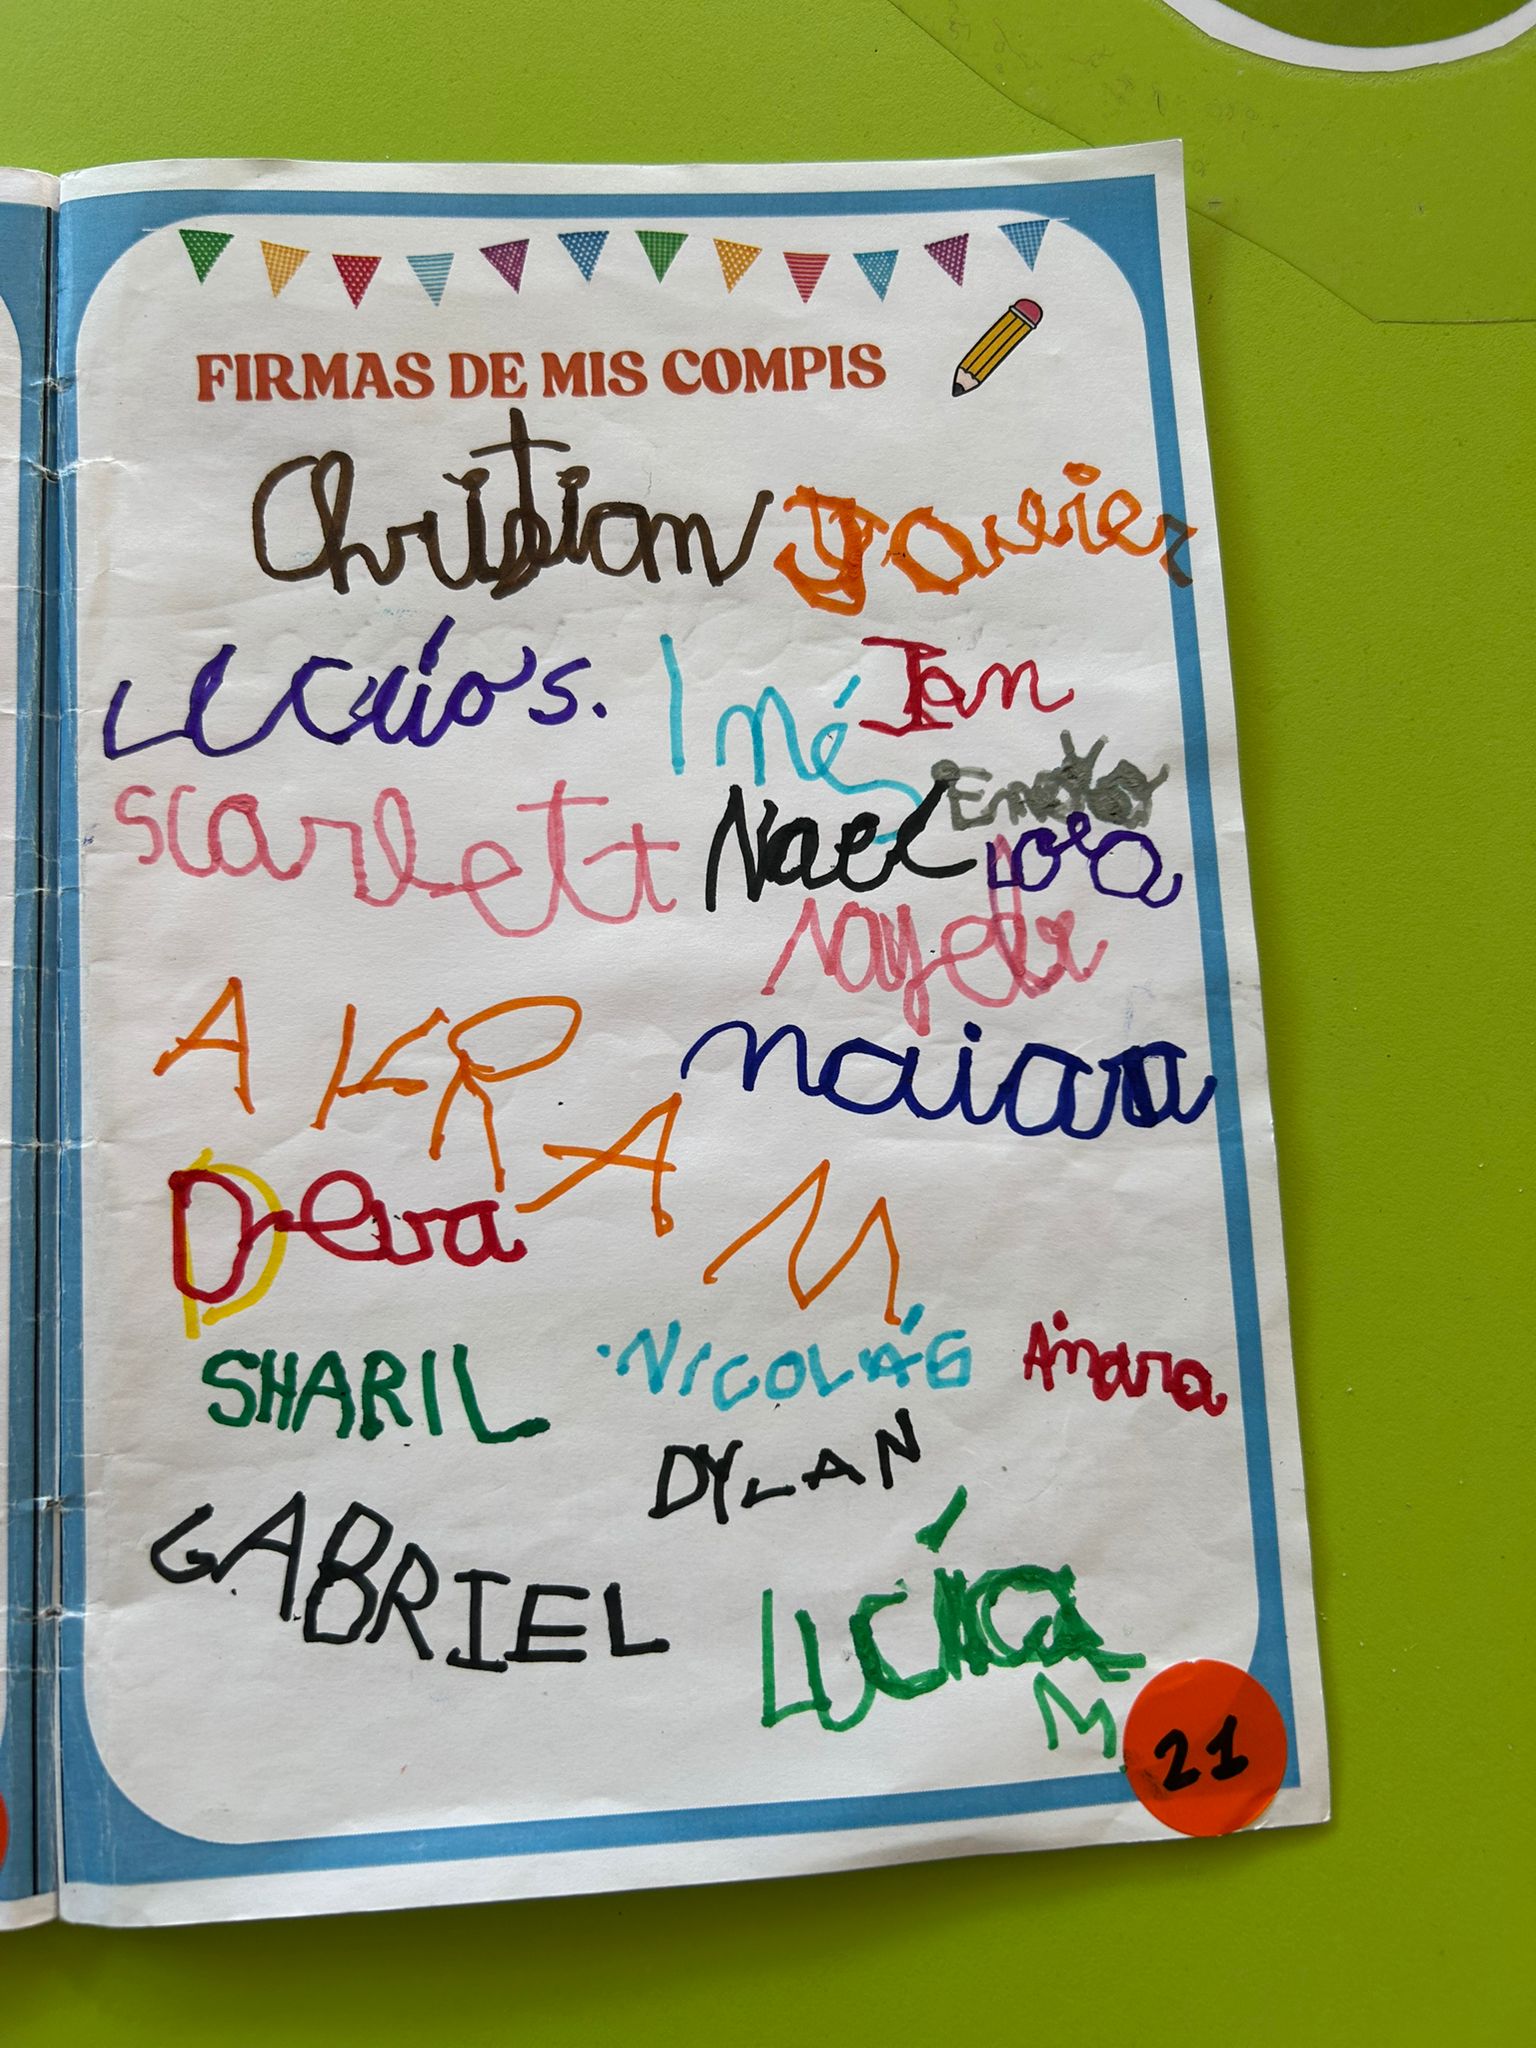 FIRMAS DE MIS COMPIS
Christian Javier
Lucía S.
Inés
Jan
Scarlett Nael
Nayelli
AKRAM
naiara
Deva
SHARIL NICOLÁS Ainara
DYLAN
GABRIEL
LUCÍA
M
21